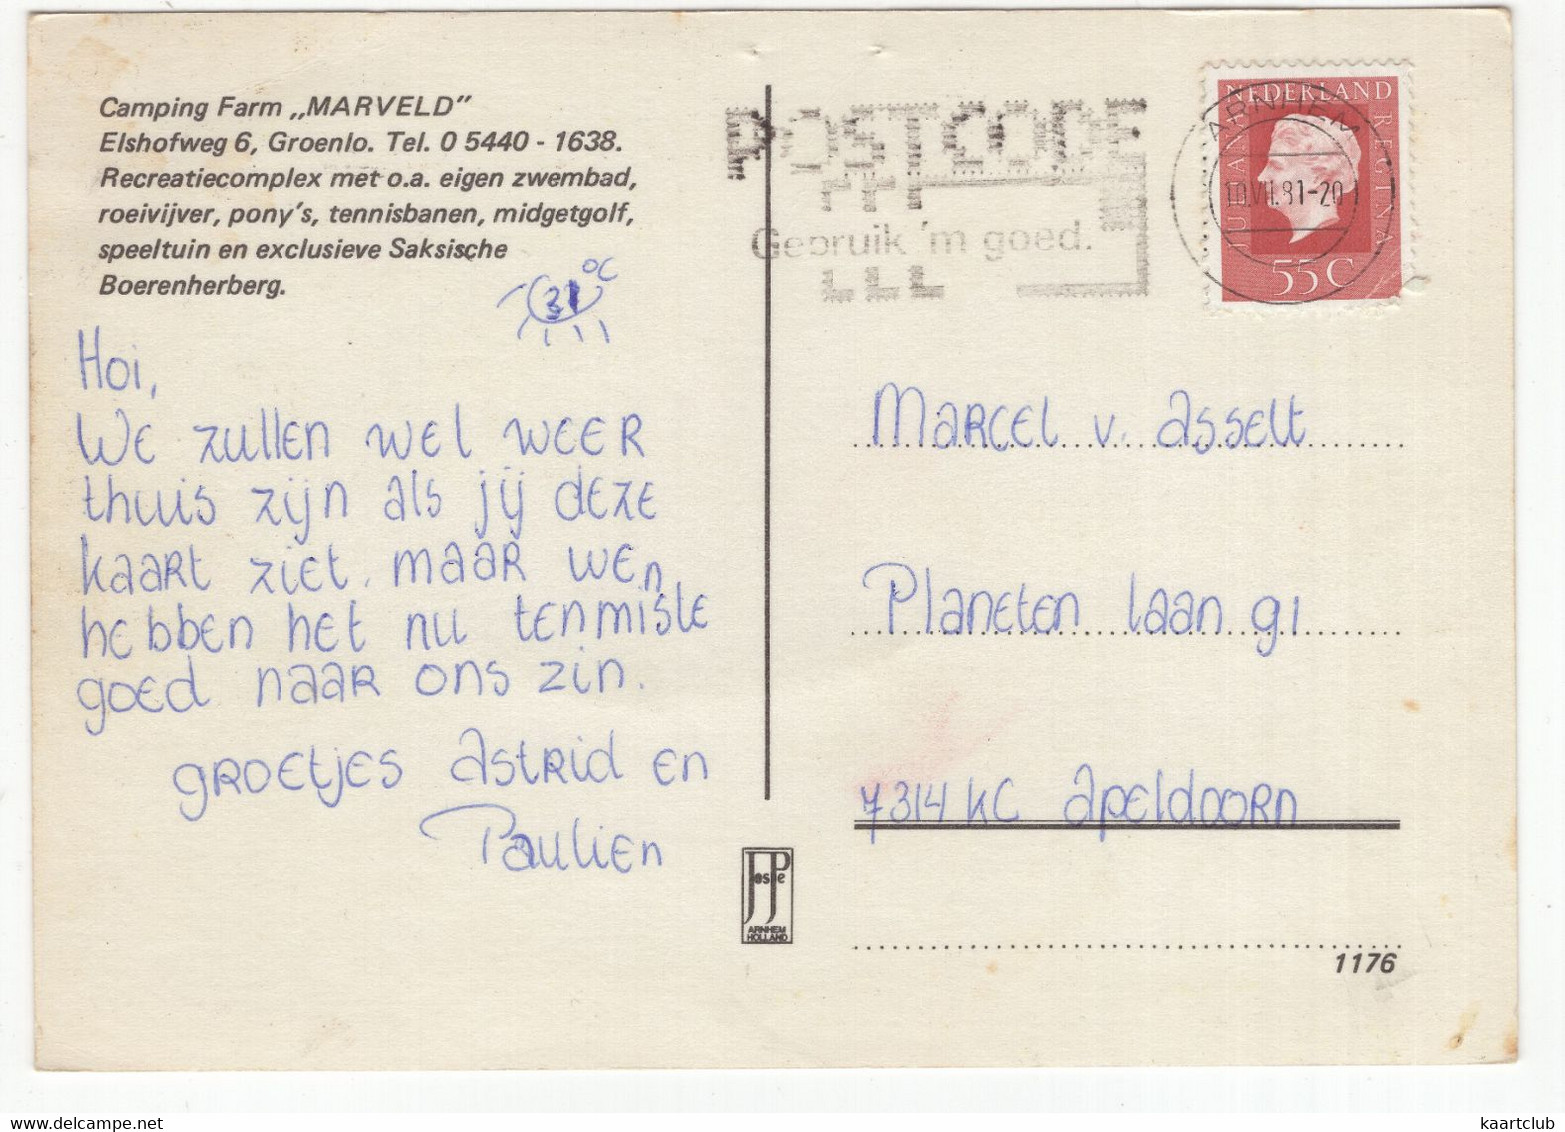 Camping Farm „MARVELD”
Elshofweg 6, Groenlo. Tel. 0 5440 - 1638.
Recreatiecomplex met o.a. eigen zwembad,
roeivijver, pony's, tennisbanen, midgetgolf,
speeltuin en exclusieve Saksische
Boerenherberg.
31 °C
Hoi,
We zullen wel weer
thuis zijn als jij deze
kaart ziet. maar we
hebben het nu tenmiste
goed naar ons zin.
groetjes Astrid en
Paulien
POSTCODE
Gebruik 'm goed.
ARNHEM
10.VII.81-20
NEDERLAND
JULIANA
REGINA
55 C
Marcel v. Asselt
Planeten laan 91
7314 KC Apeldoorn
JosPe
ARNHEM
HOLLAND
1176
kaartclub